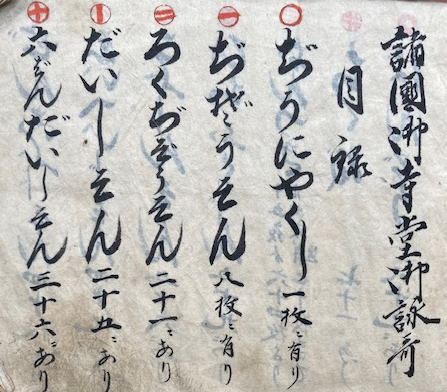 諸國御寺堂御詠哥
目録
ぢうにやくし 一枚ニ有り
ぢぞうそん 八枚ニ有り
ろくぢぞうそん 二十一ニあり
だいしそん 二十五ニあり
六ぞんだいしそん 三十六ニあり